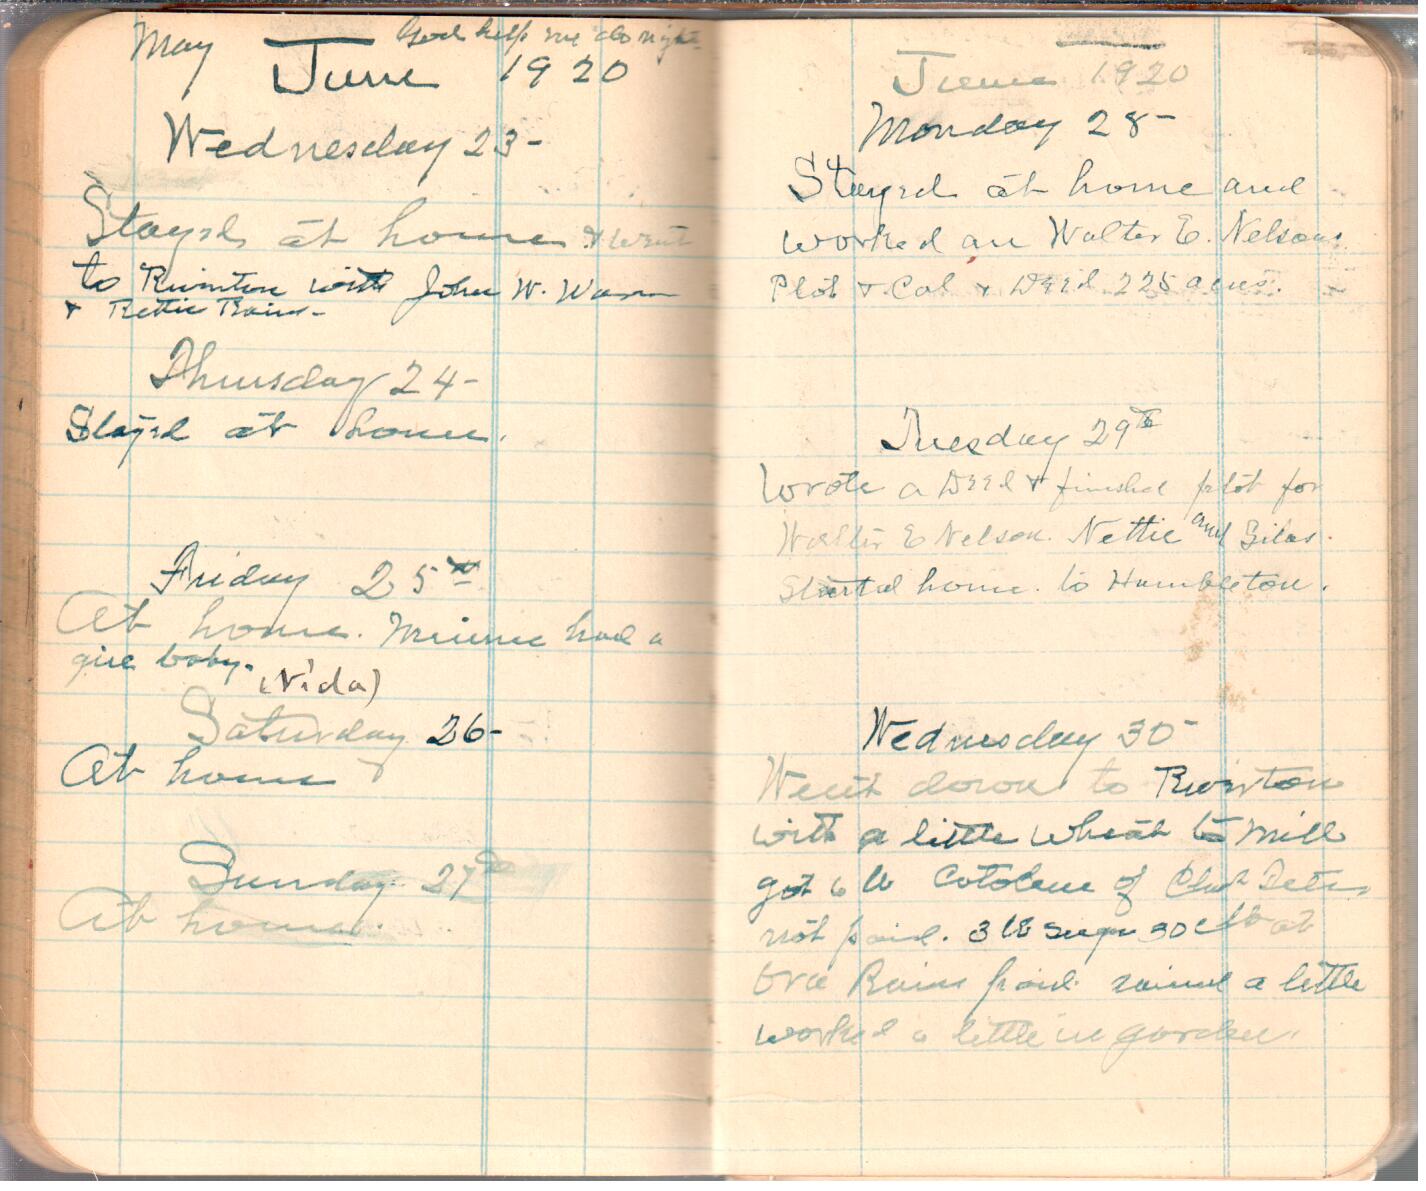 May God help me do right
June 1920
Wednesday 23-
Stayed at home & went
to Riverton with John W.
& Bettie Rains-
Thursday 24-
Stayed at home.
Friday 25th
At home. Minnie had a
girl baby. (Nida)
Saturday 26-
At home
Sunday 27th
At home.
June 1920
Monday 28-
Stayed at home and
worked on Walter E. Nelsons
Plot & Cal & Deed 225 acres.
Tuesday 29th
Wrote a Deed & finished plot for
Walter E Nelson. Nettie and Silas
started home to Hambleton.
Wednesday 30-
Went down to Riverton
with a little wheat to mill
got 6 lb Cotolene of
not paid. 3 lb sugar 30c lb at
Bra Rains paid. rained a little
worked a little in garden.